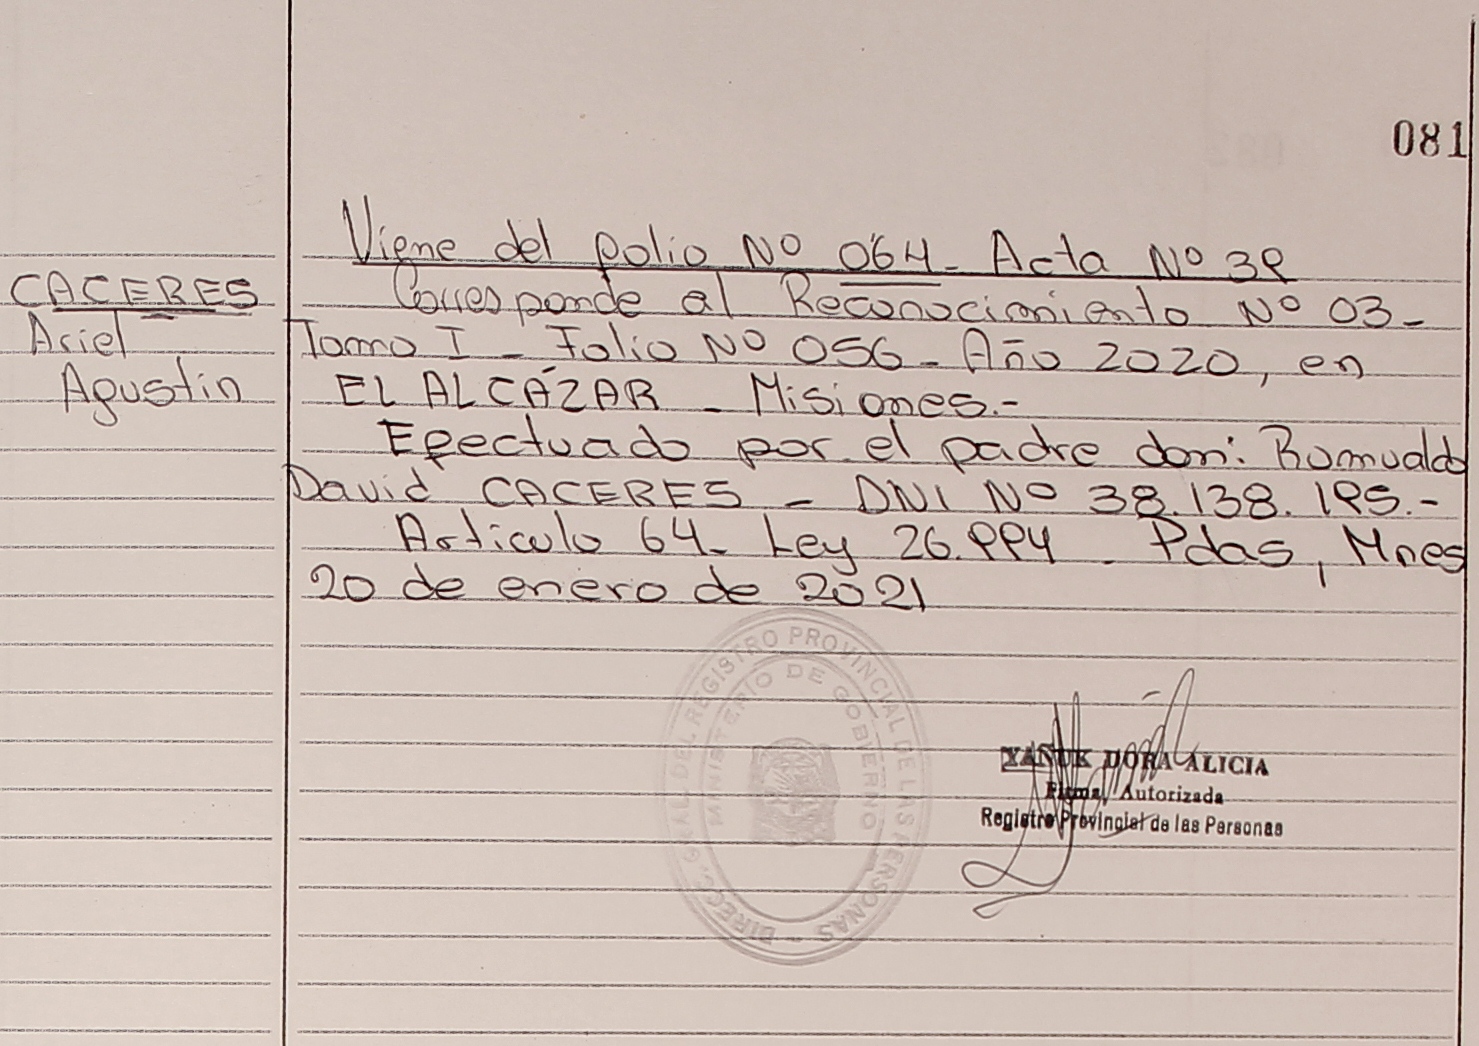 081
Viene del folio Nº 064 - Acta Nº 39
CACERES
Ariel
Agustín
Corresponde al Reconocimiento Nº 03 -
Tomo I - Folio Nº 056 - Año 2020, en
EL ALCÁZAR - Misiones.-
Efectuado por el padre don: Romualdo
David CACERES - DNI Nº 38.138.195.-
Artículo 64 - Ley 26.994 - Pdas, Mnes
20 de enero de 2021
DIRECC. GRAL. DEL REGISTRO PROVINCIAL DE LAS PERSONAS -
MINISTERIO DE GOBIERNO
YANUK DORA ALICIA
Firma Autorizada
Registro Provincial de las Personas